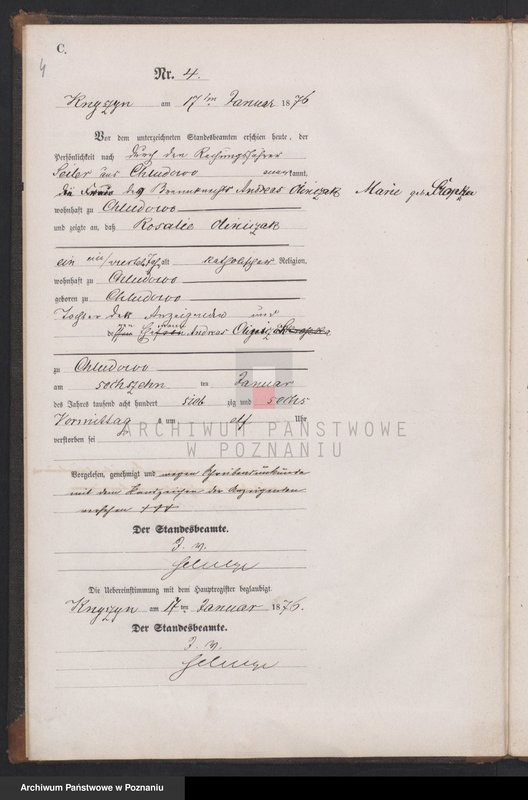 C.
4
Nr. 4.
Knyszyn am 17ten Januar 1876
Vor dem unterzeichneten Standesbeamten erschien heute, der
Persönlichkeit nach durch den Rechnungsführer
Seiler aus Chludowo anerkannt,
die Frau des Brennknechts Andreas Marie geb.
wohnhaft zu Chludowo
und zeigte an, daß Rosalie
ein ein/viertel Jahr alt katholischer Religion,
wohnhaft zu Chludowo
geboren zu Chludowo
Tochter der Anzeigenden und
Andreas
zu Chludowo
am sechszehn ten Januar
des Jahres tausend acht hundert sieb zig und sechs
Vormittag s um elf Uhr
verstorben sei
Vorgelesen, genehmigt und wegen Schreibensunkunde
mit dem Handzeichen der Anzeigenden
versehen +++
Der Standesbeamte.
J. V.
Die Uebereinstimmung mit dem Hauptregister beglaubigt
Knyszyn am 17ten Januar 1876.
Der Standesbeamte.
J. V.
ARCHIWUM PAŃSTWOWE
W POZNANIU
Archiwum Państwowe w Poznaniu